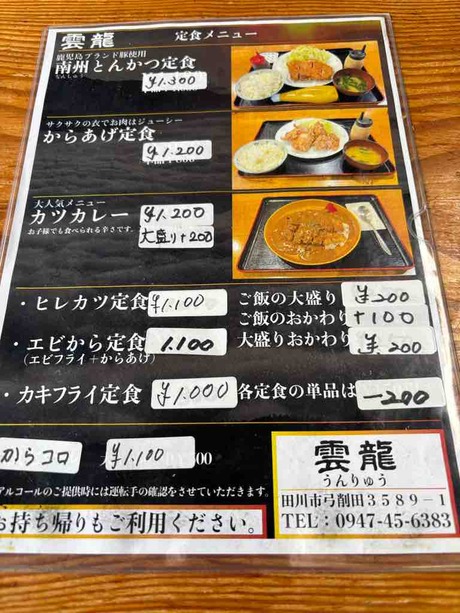 雲龍
定食メニュー
鹿児島ブランド豚使用
南州とんかつ定食
なんしゅう
¥1.300
サクサクの衣でお肉はジューシー
からあげ定食
¥1.200
大人気メニュー
カツカレー
¥1.200
お子様でも食べられる辛さです。
大盛り+200
・ヒレカツ定食
¥1.100
・エビから定食
1.100
(エビフライ+からあげ)
・カキフライ定食
¥1.000
ご飯の大盛り
¥200
ご飯のおかわり
+100
大盛りおかわり
¥200
各定食の単品は
-200
からコロ
¥1.100
アルコールのご提供時には運転手の確認をさせていただきます。
お持ち帰りもご利用ください。
雲龍
うんりゅう
田川市弓削田3589-1
TEL:0947-45-6383